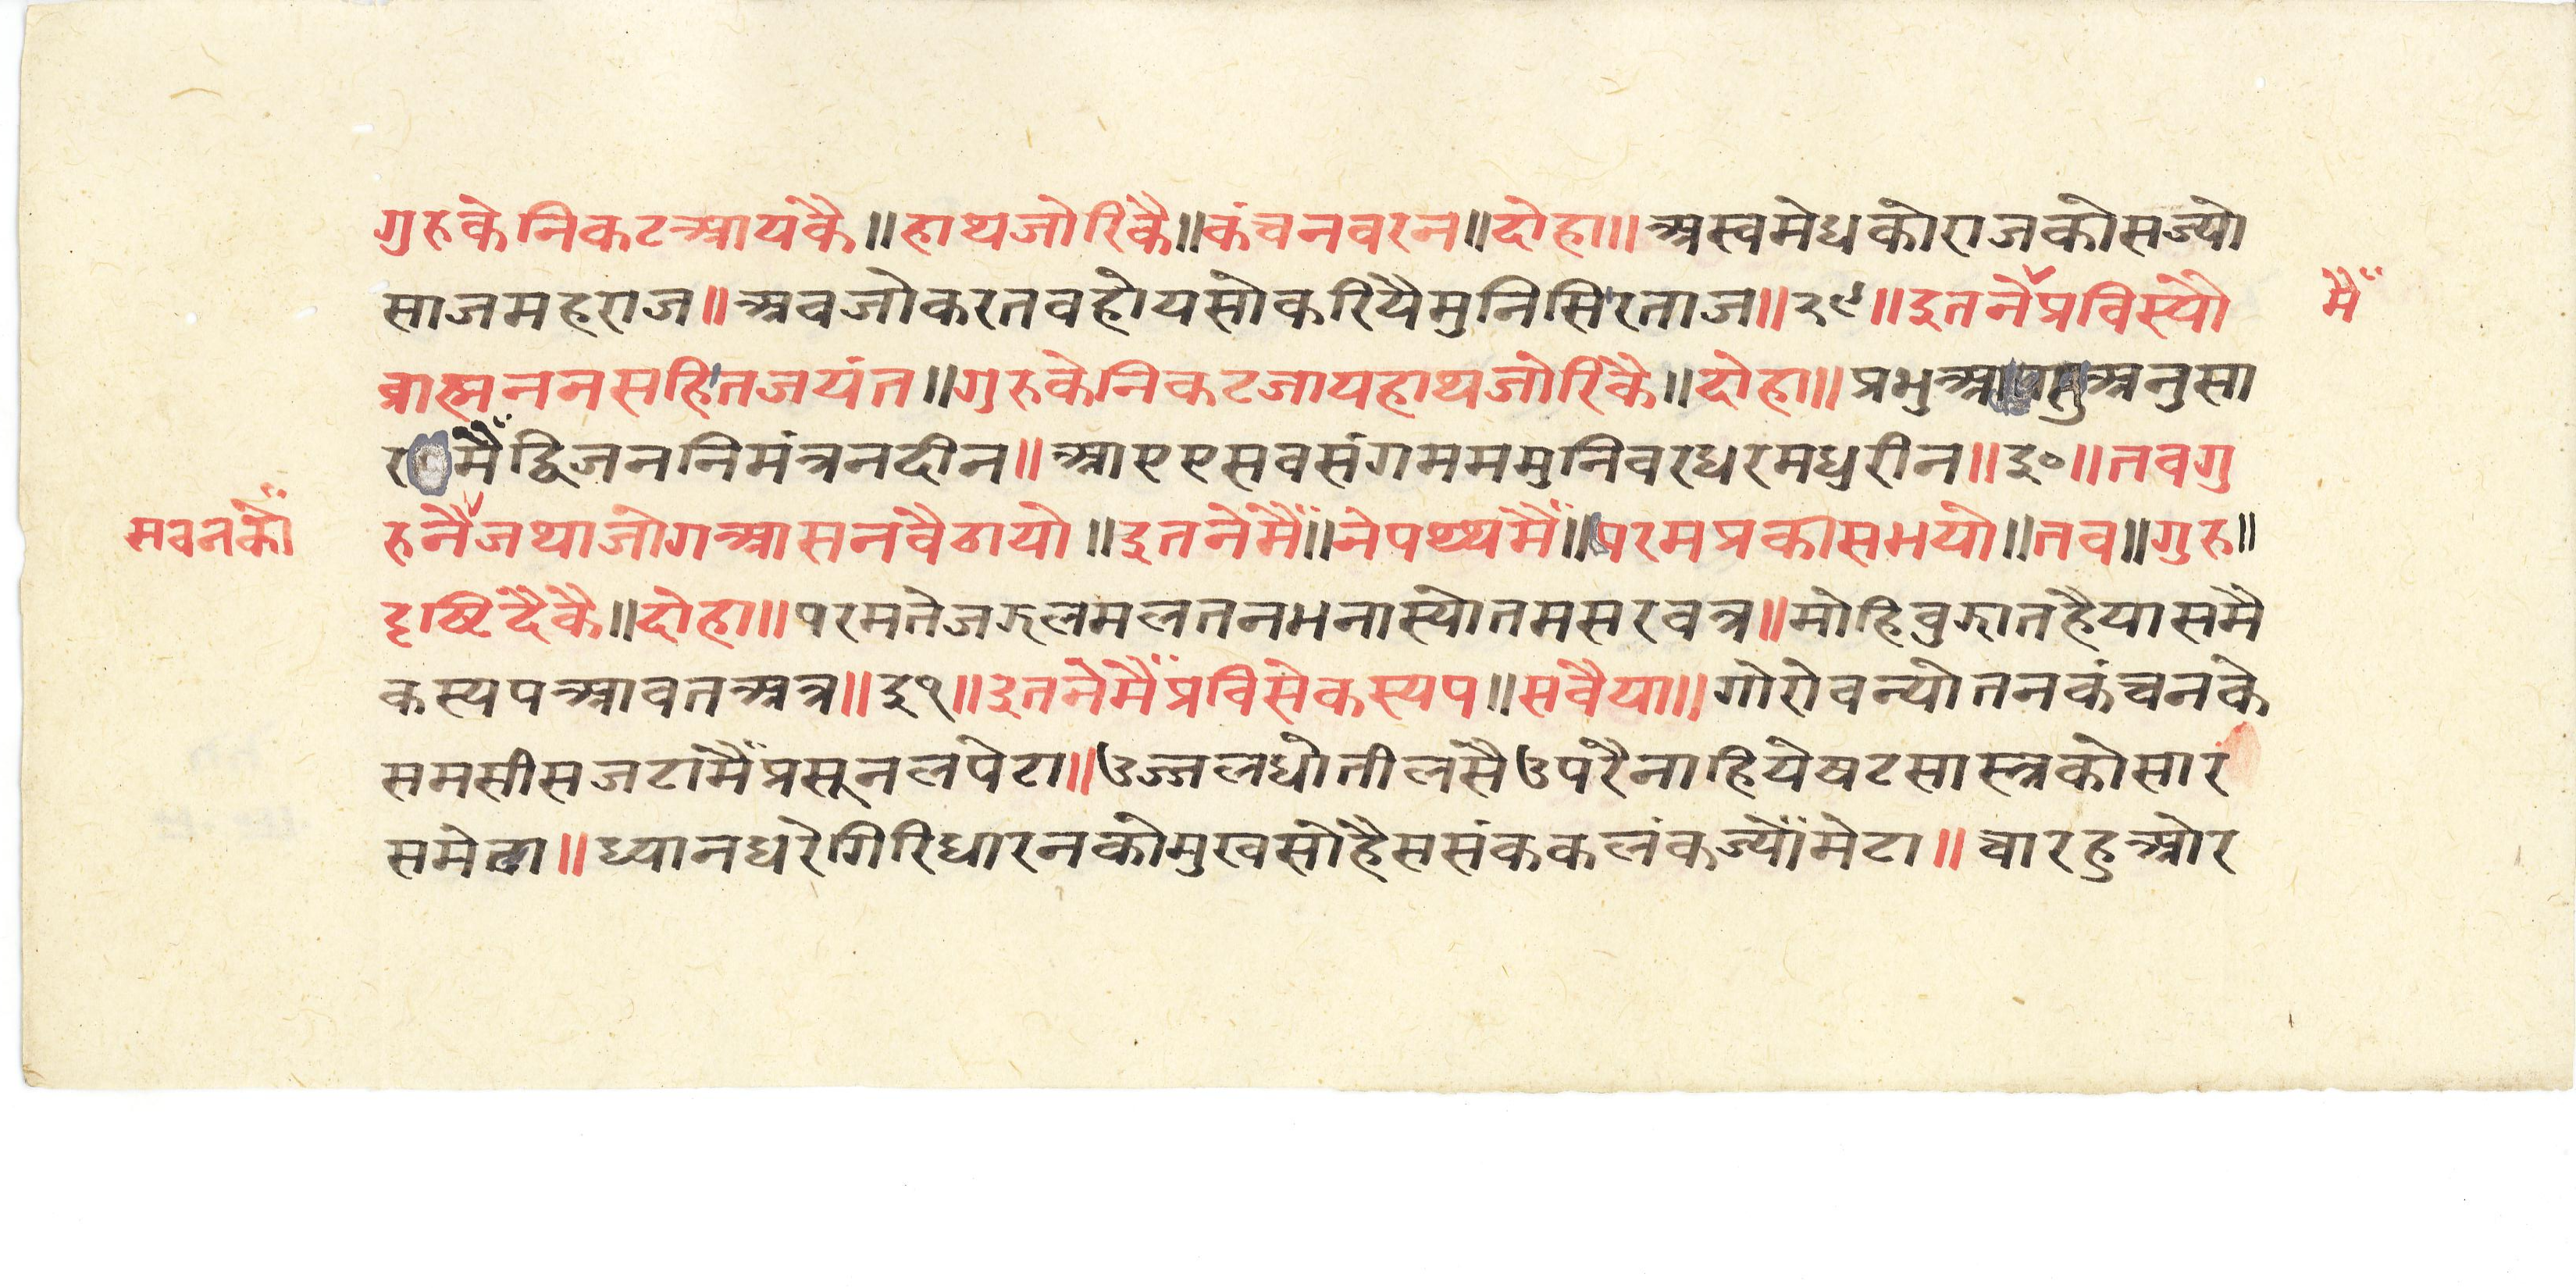 गुरुकेनिकटआयकै॥हाथजोरिकै॥कंचनवरन॥दोहा॥अस्वमेधकोराजकोसज्यो
साजमहराज॥अवजोकरतवहोयसोकरियैमुनिसिरताज॥२९॥इतनेप्रविस्यौ
मैं
ब्राह्मननसहितजयंत॥गुरुकेनिकटजायहाथजोरिकै॥दोहा॥प्रभुआ अनुसा
र मैंद्विजननिमंत्रनदीन॥आएएसवसंगमममुनिवरधरमधुरीन॥३०॥तवगु
सवनकौं
रुनैजथाजोगआसनवैठायो॥इतनेमैं॥नेपथ्थमैं॥परमप्रकासभयो॥तव॥गुरु॥
दृष्टिदैकै॥दोहा॥परमतेजझलमलतनभनास्योतमसरवत्र॥मोहिवुझातहैयासमै
कस्यपआवतअत्र॥३१॥इतनेमैंप्रविसेकस्यप॥सवैया॥गोरोवन्योतनकंचनके
समसीसजटामैंप्रसूनलपेटा॥उज्जलधोतीलसैउपरैनाहियेषटसास्त्रकोसार
समेटा॥ध्यानधरेगिरिधारनकोमुखसोहैससंककलंकज्यौंमेटा॥चारहुओर